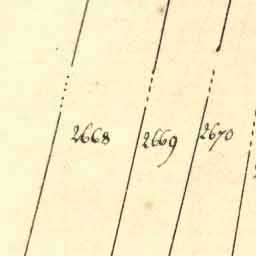 2668 2669 2670